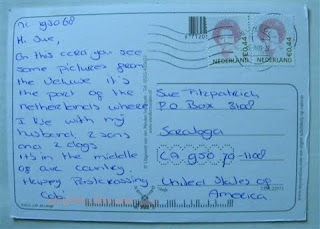 nl 193068
Hi Sue,
On this card you see
some pictures from
the Veluwe it's
the part of the
netherlands where
I live with my
husband, 2 sons
and 2 dogs
It's in the middle
of our country
Happy Postcrossing
Cobi
€0,44
€0,44
NEDERLAND
NEDERLAND
Sue Fitzpatrick
P.O Box 3100
Saratoga
CA 950 70-1100
United States of
America